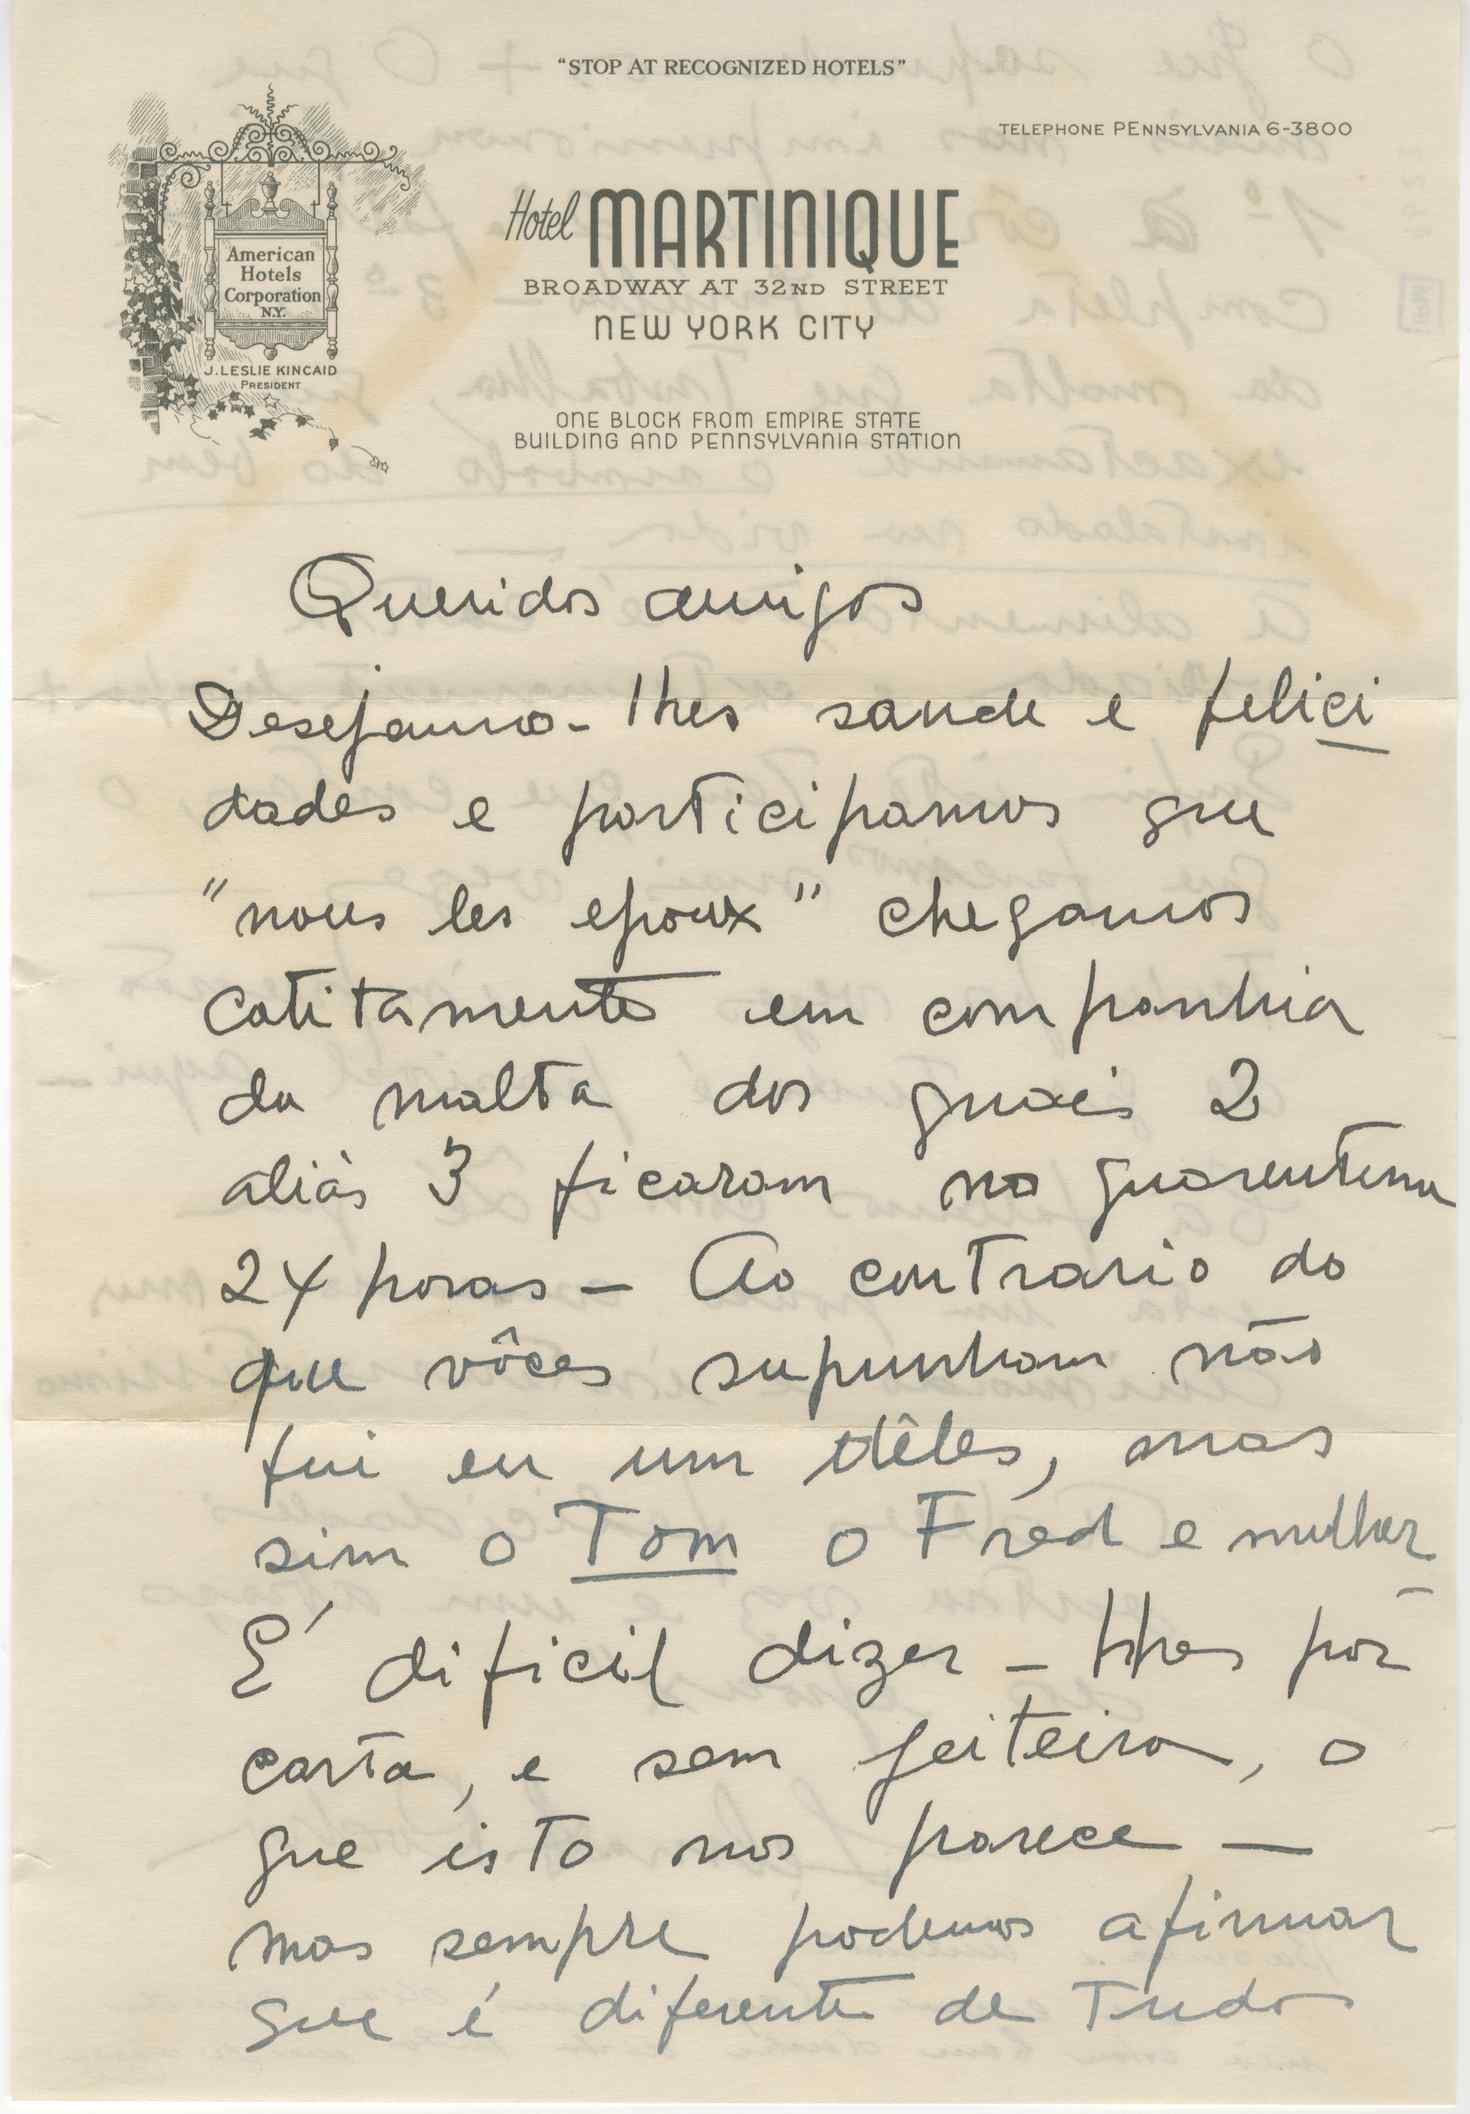 "STOP AT RECOGNIZED HOTELS"
TELEPHONE PENNSYLVANIA 6-3800
Hotel MARTINIQUE
BROADWAY AT 32ND STREET
NEW YORK CITY
ONE BLOCK FROM EMPIRE STATE
BUILDING AND PENNSYLVANIA STATION
American
Hotels
Corporation
N.Y.
J. LESLIE KINCAID
PRESIDENT
Queridos amigos
Desejamo-lhes saude e felici
dades e participamos que
"nous les epoux" chegamos
catitamente em companhia
da malta dos quais 2
aliàs 3 ficaram na quarentena
24 horas – Ao contrario do
que vôces supunham não
fui eu um dêles, mas
sim o Tom o Fred e mulher
É dificil dizer-lhes por
carta, e sem jeiteira, o
que isto nos parece —
mas sempre podemos afirmar
que é diferente de tudo